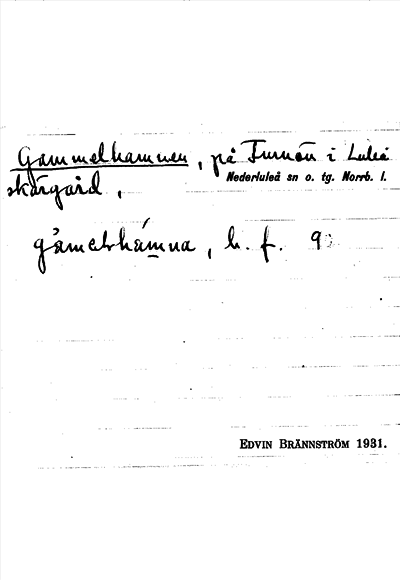 Gammelhamnen, på Furuön i Luleå
Nederluleå sn o. tg. Norrb. l.
skärgård,
b. f. 9
EDVIN BRÄNNSTRÖM 1931.